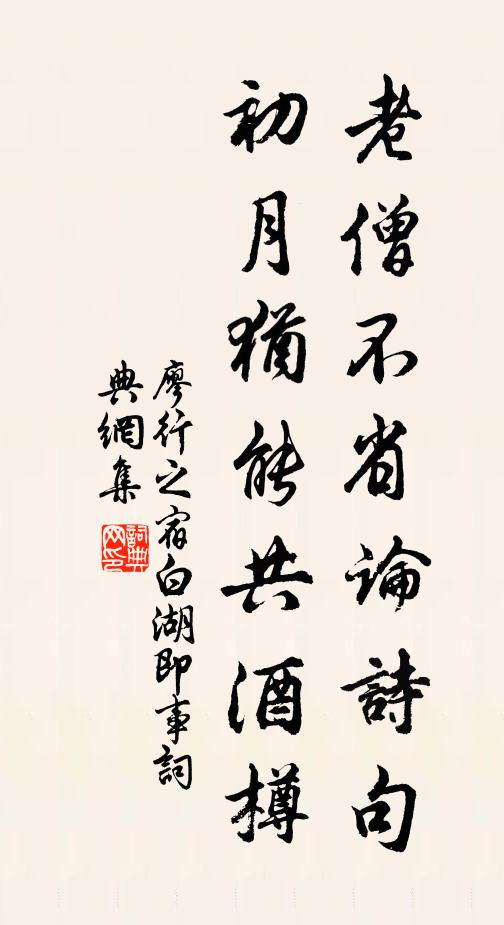 老僧不省論詩句
初月猶能共酒樽
廖行之宿白湖即事詞
典網集
詞典
网印